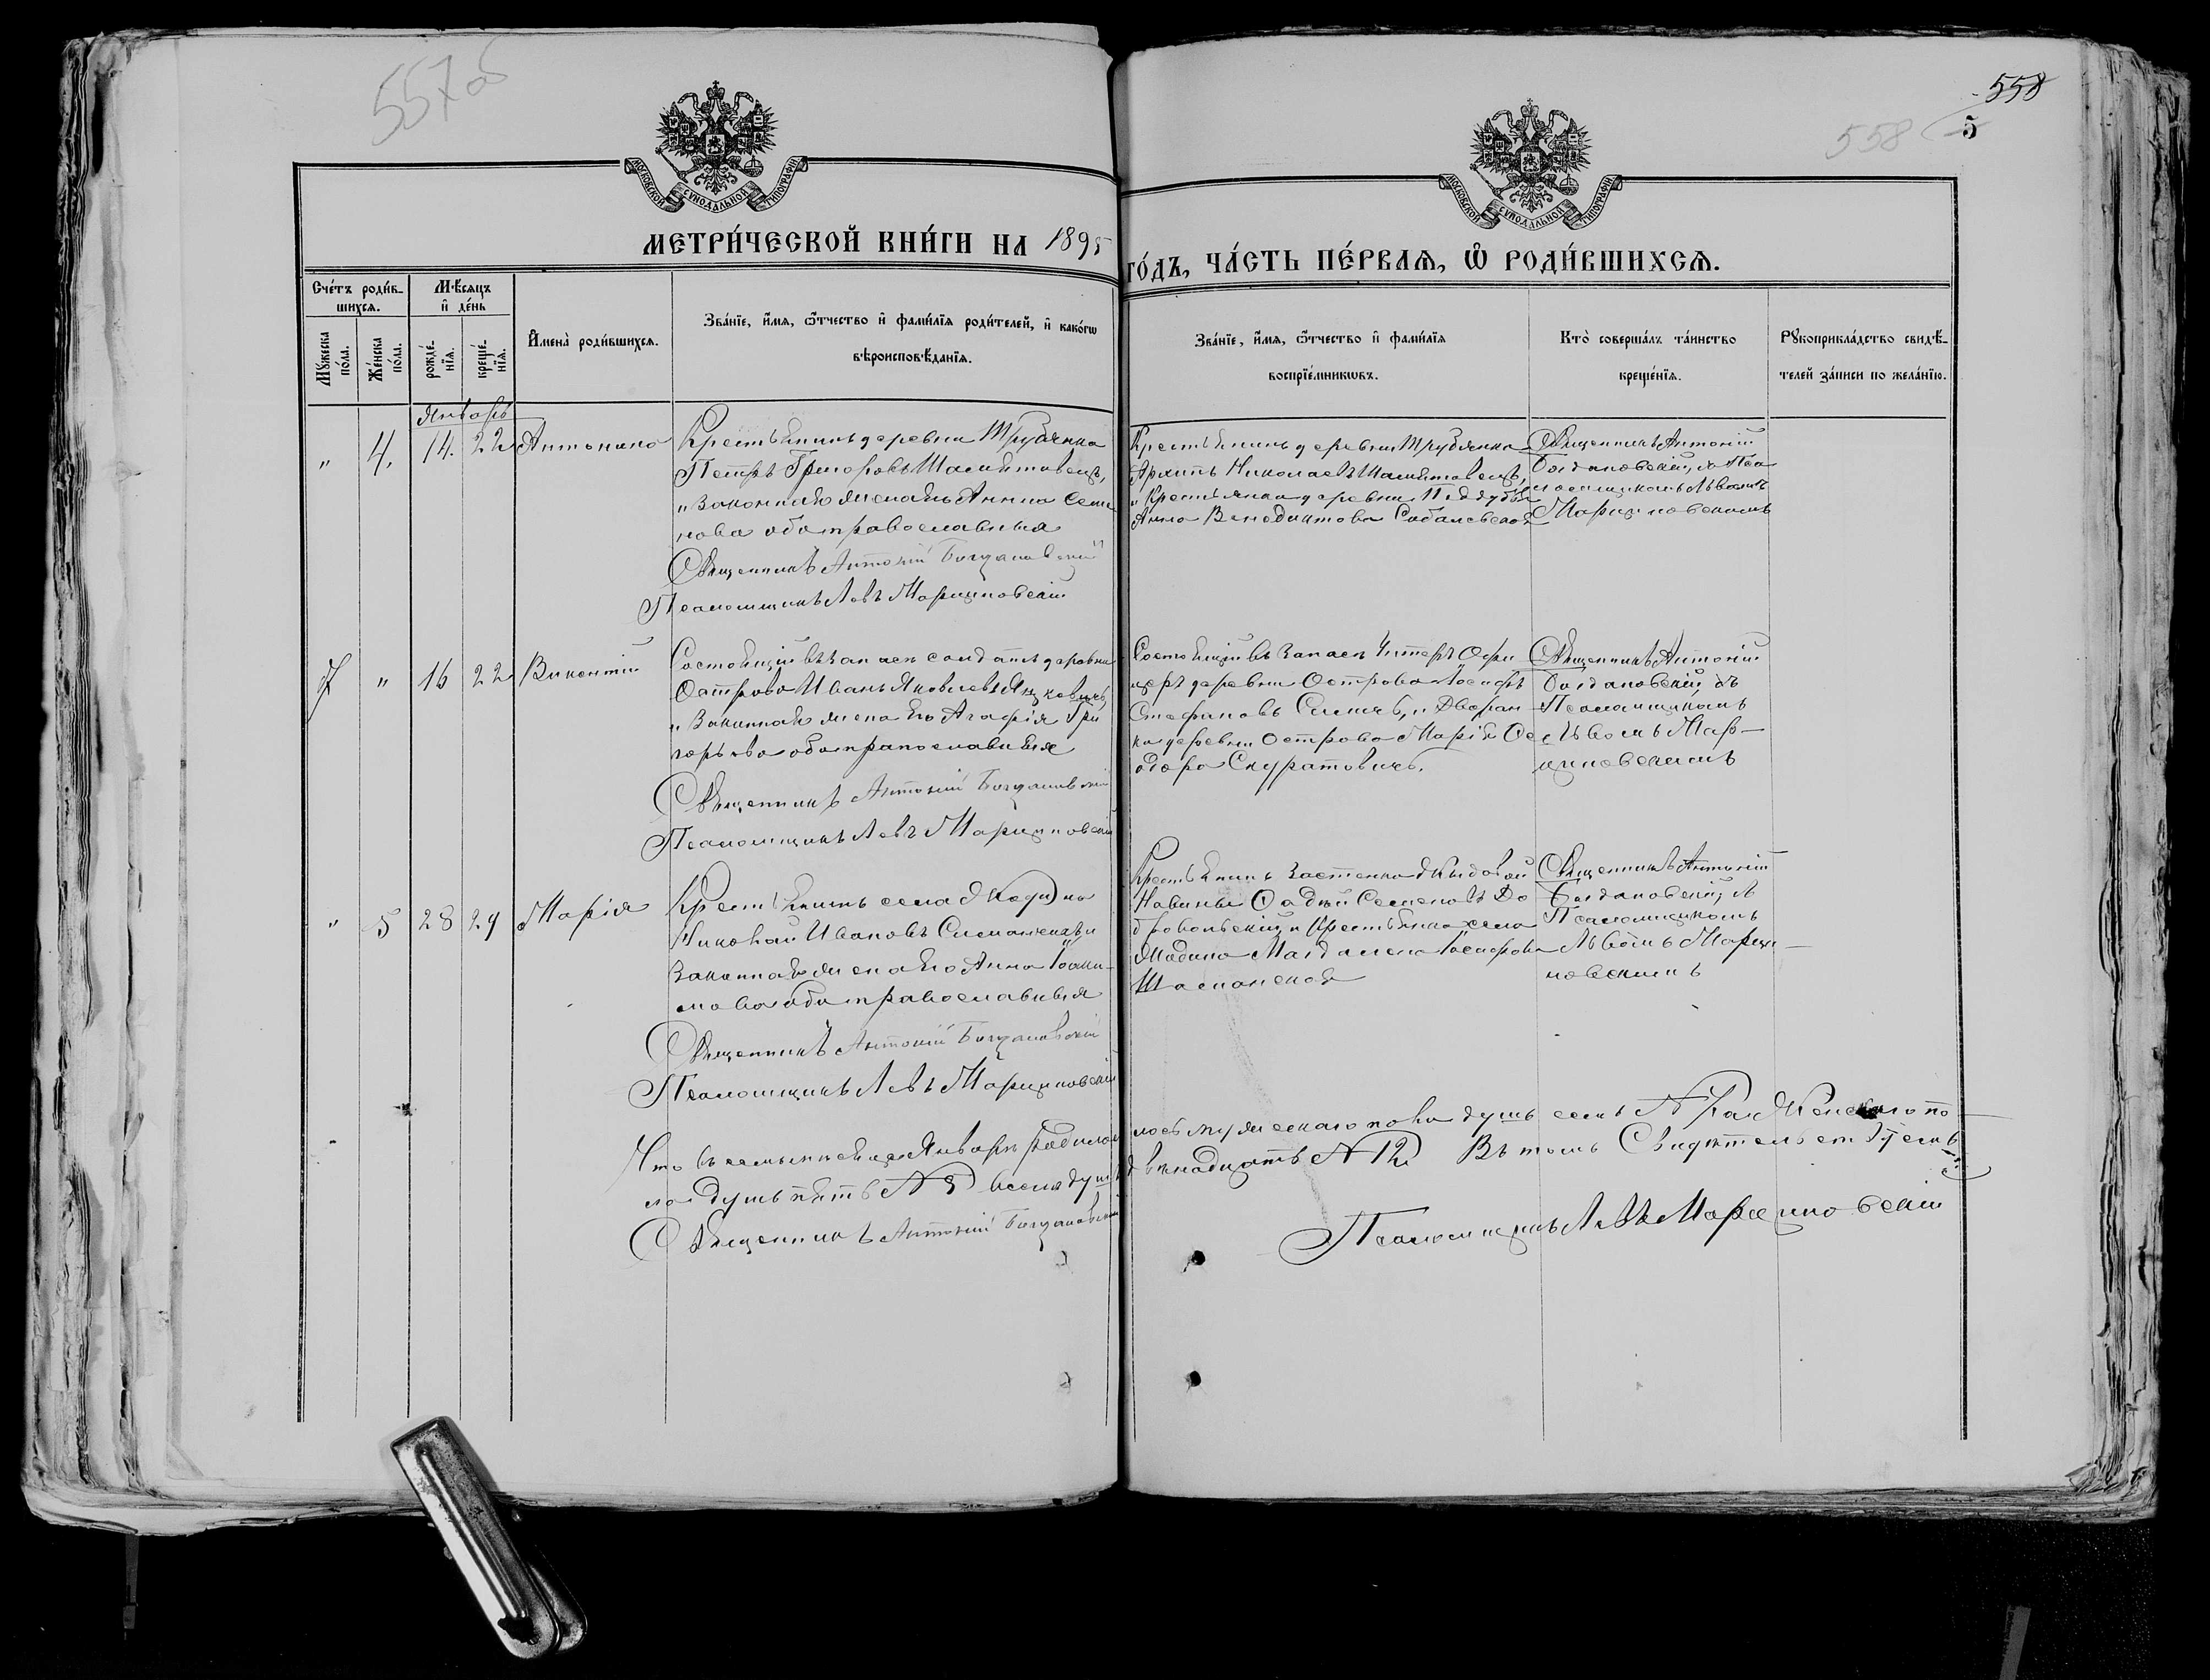 557об
558
558
5
МОСКОВСКОЙ СѴНОДАЛЬНОЙ ТИПОГРАФІИ
МОСКОВСКОЙ СѴНОДАЛЬНОЙ ТИПОГРАФІИ
МЕТРИ́ЧЕСКОЙ КНИ́ГИ НА 1895
ГО́ДЪ, ЧА́СТЬ ПЕ́РВАѦ, Ѡ҆ РОДИ́ВШИХСѦ.
Сче́тъ роди́в-
шихсѧ.
Мꙋ́жеска по́ла.
Же́нска по́ла.
М́ѣсѧцъ
и҆ де́нь
рожде́-
нїѧ.
креще́-
нїѧ.
И҆мена̀ роди́вшихсѧ.
Зва́нїе, и҆́мѧ, ѻ҆́тчество и҆ фами́лїѧ роди́телей, и҆ како́гѡ
вѣроисповѣ́данїѧ.
Зва́нїе, и҆́мѧ, ѻ҆́тчество и҆ фами́лїѧ
воспрїе́мникѡвъ.
Кто̀ соверша́лъ та́инство
креще́нїѧ.
Рꙋкоприкла́дство свидѣ́-
телей за́писи по жела́нїю.
Январь
" 4. 14. 22 Антонина
Крестьянинъ деревни Трубянка
Петръ Григоровъ
и законная жена его Анна Семе
нова оба православныя
Священникъ Антоній Богдановскій
Псаломщикъ Левъ Марциновскій
Крестьянинъ деревни Трубянка
Архипъ Николаевъ
и Крестьянка деревни
Анна Венедиктова
Священникъ Антоній
Богдановскій, съ Пса
ломщикомъ Львомъ
Марциновскимъ
7 " 16 22 Викентій
Состоящій въ запасѣ солдатъ деревни
Острова Иванъ Яковлевъ Яцкевичъ,
и законная жена его Агафія Гри
горьева оба православныя
Священникъ Антоній Богдановскій
Псаломщикъ Левъ Марциновскій
Состоящій въ запасѣ Унтеръ Офи
церъ деревни Острова Іосифъ
Стефановъ и Дворян
ка деревни Острова Марія Ѳе
одора Скуратовичъ.
Священникъ Антоній
Богдановскій, съ
Псаломщикомъ
Львомъ Мар-
циновскимъ
" 5 28 29 Марія
Крестьянинъ села
Николай Ивановъ и
законная жена его Анна Іоаки-
мова оба православныя
Священникъ Антоній Богдановскій
Псаломщикъ Левъ Марциновскій
Крестьянинъ застенка
Навины Фадей Семеновъ До
бровольскій и Крестьянка села
Магдалена Іосифова
Шаманская
Священникъ Антоній
Богдановскій, съ
Псаломщикомъ
Львомъ Марци-
новскимъ
Что въ семъ мѣсяцѣ Январѣ родилось мужескаго пола душъ семь № 7 а Женскаго по-
ла душъ пять № 5 всего душъ двѣнадцать № 12. Въ томъ Свидѣтельствуемъ
Священникъ Антоній Богдановскій
Псаломщикъ Левъ Марциновскій